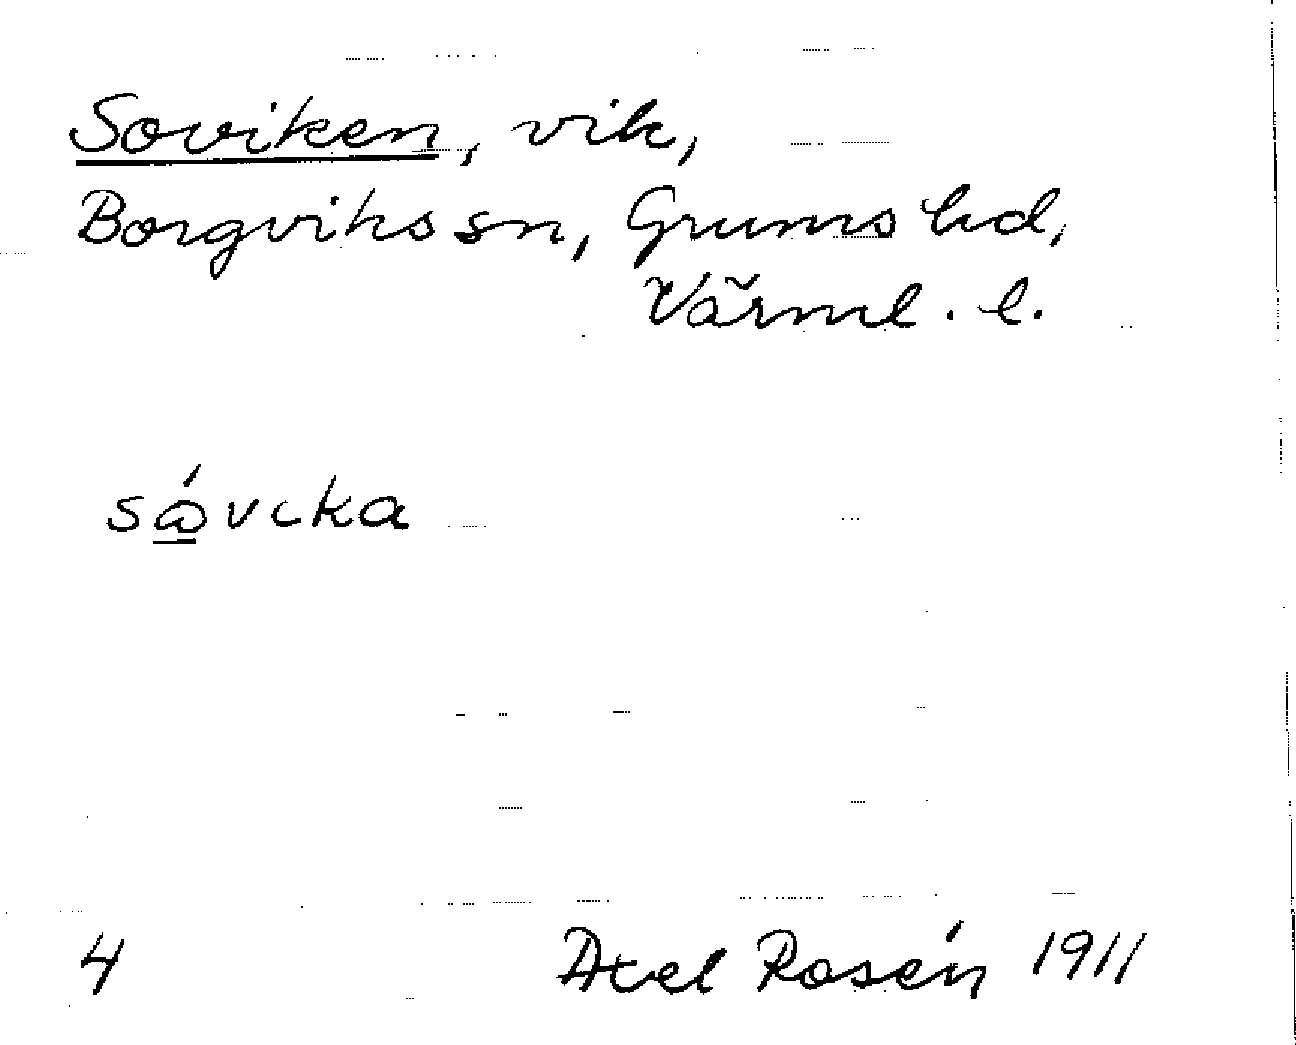 Soviken, vik,
Borgviks sn, Grums hd,
Värml. l.
sá̲vıka
4 Axel Rosén 1911